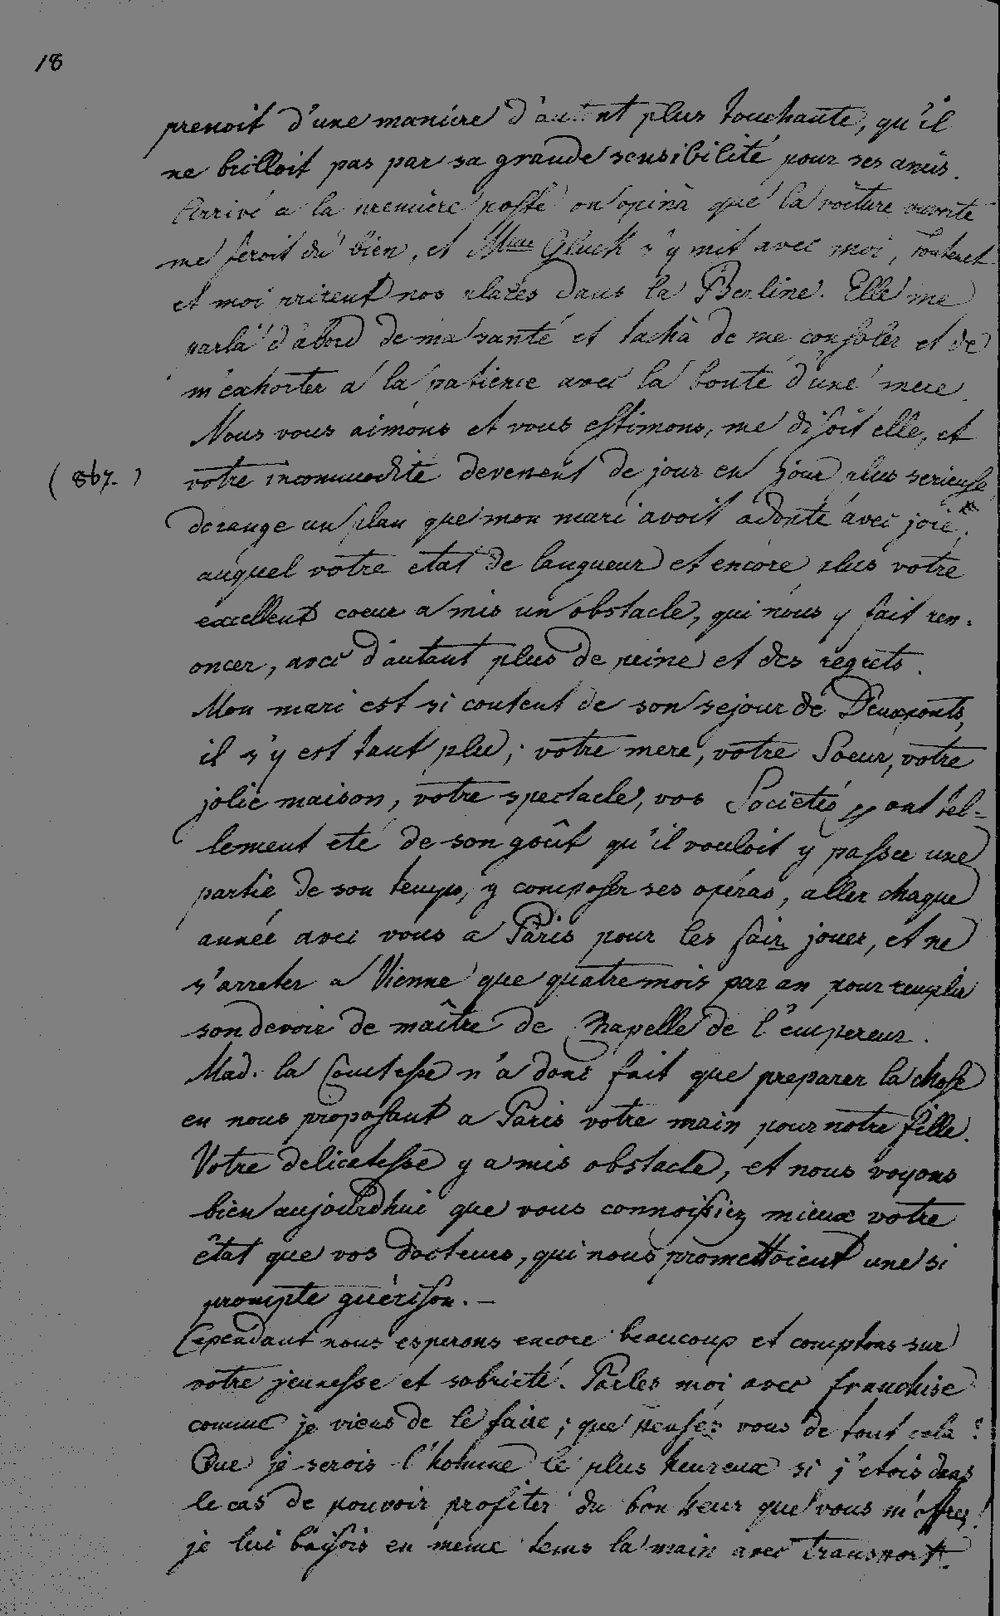 18
prenoit d'une maniere d'autant plus touchante, qu'il
ne brilloit pas par sa grande sensibilité pour ses amis.
Arrivé a la premiere poste on opina que la voiture ouverte
me feroit du bien, et Mme Gluck s'y mit avec moi,
et moi prirent nos places dans la Berline. Elle me
parla d'abord de ma santé et tacha de me consoler et de
m'exhorter a la patience avec la bonté d'une mere.
Nous vous aimons et vous estimons, me disoit elle, et
(867.) votre incommodité devenent de jour en jour plus serieuse
derange un plan que mon mari avoit adopté avec joie,
auquel votre etat de langueur et encore plus votre
excellent coeur a mis un obstacle, qui nous y fait ren-
oncer, avec d'autant plus de peine et des regrets.
Mon mari est si content de son sejour de Deuxponts,
il s'y est tant plu; votre mere, votre Soeur, votre
jolie maison, votre spectacle, vos Societés ont tel=
lement eté de son goût qu'il vouloit y passer une
partie de son temps, y composer ses opéras, aller chaque
année avec vous a Paris pour les fair jouer, et ne
s'arreter a Vienne que quatre mois par an pour remplir
son devoir de maître de Chapelle de l'empereur.
Mad. la Comtesse n'a donc fait que preparer la chose
en nous proposant a Paris votre main pour notre fille.
Votre delicatesse y a mis obstacle, et nous voyons
bien aujourdhui que vous connoissiez mieux votre
êtat que vos docteurs, qui nous promettoient une si
prompte guérison. —
Cependant nous esperons encore beaucoup et comptons sur
votre jeunesse et sobrieté. Parles moi avec franchise
comme je viens de le faire; que pensés vous de tout cela?
Que je serois l'homme le plus heureux si j'etois dans
le cas de pouvoir profiter du bonheur que vous m'offrez!
je lui baisois en meme tems la main avec transport.